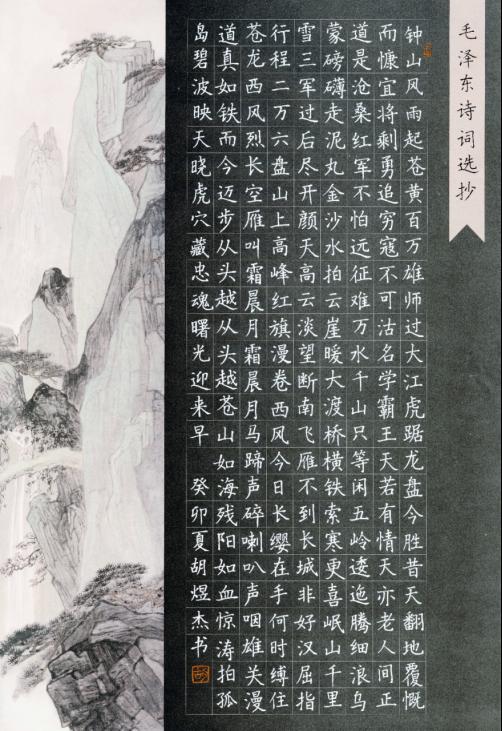 毛泽东诗词选抄
钟山风雨起苍黄百万雄师过大江虎踞龙盘今胜昔天翻地覆慨
而慷宜将剩勇追穷寇不可沽名学霸王天若有情天亦老人间正
道是沧桑红军不怕远征难万水千山只等闲五岭逶迤腾细浪乌
蒙磅礴走泥丸金沙水拍云崖暖大渡桥横铁索寒更喜岷山千里
雪三军过后尽开颜天高云淡望断南飞雁不到长城非好汉屈指
行程二万六盘山上高峰红旗漫卷西风今日长缨在手何时缚住
苍龙西风烈长空雁叫霜晨月霜晨月马蹄声碎喇叭声咽雄关漫
道真如铁而今迈步从头越从头越苍山如海残阳如血惊涛拍孤
岛碧波映天晓虎穴藏忠魂曙光迎来早 癸卯夏胡煜杰书